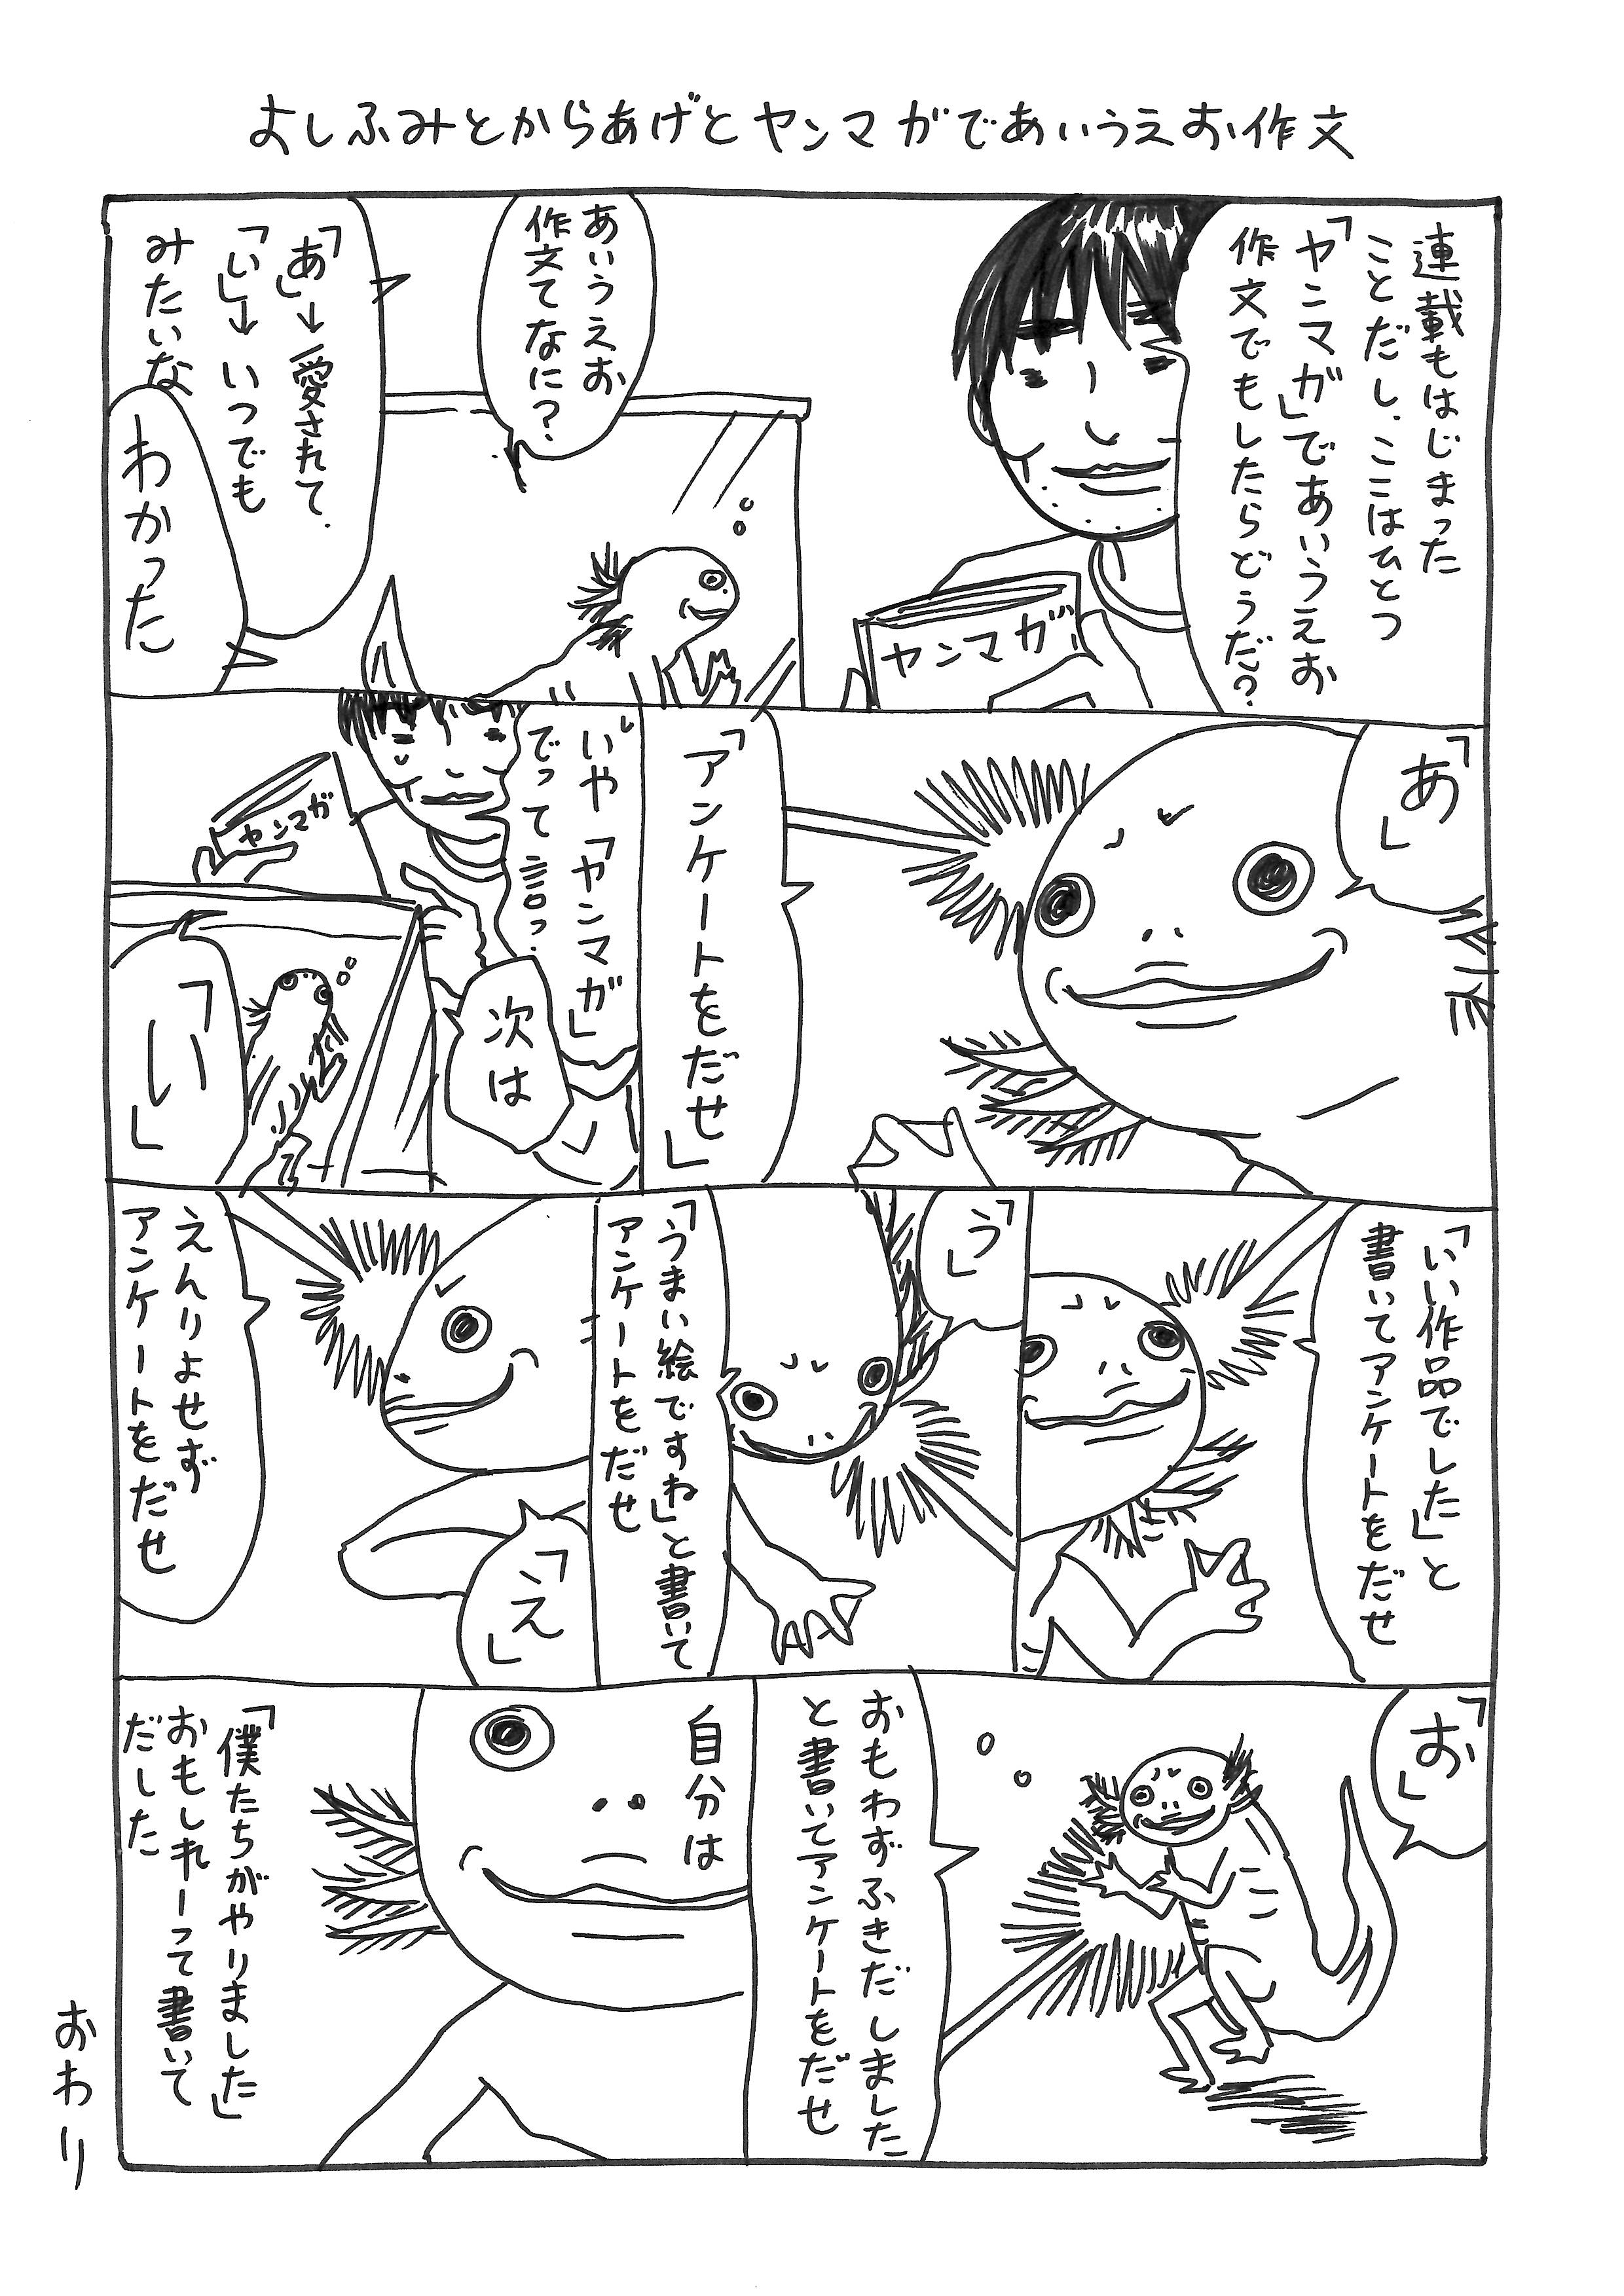 よしふみとからあげとヤンマガであいうえお作文
連載もはじまった
ことだし、ここはひとつ
「ヤンマガ」であいうえお
作文でもしたらどうだ?
ヤンマガ
あいうえお
作文てなに?
「あ」→愛されて
「い」→いつでも
みたいな
わかった
「あ」
「アンケートをだせ」
いや「ヤンマガ」
でって言っ
ヤンマガ
次は
「い」
「いい作品でした」と
書いてアンケートをだせ
「う」
「うまい絵ですね」と書いて
アンケートをだせ
「え」
えんりよせず
アンケートをだせ
「お」
おもわずふきだしました
と書いてアンケートをだせ
自分は
「僕たちがやりました」
おもしれーって書いて
だした
おわり